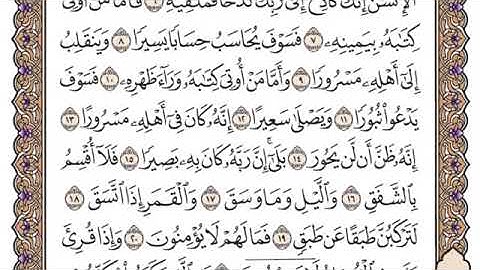 ٱلْإِنسَٰنُ إِنَّكَ كَادِحٌ إِلَىٰ رَبِّكَ كَدْحًا فَمُلَٰقِيهِ ٦ فَأَمَّا مَنْ أُوتِىَ
كِتَٰبَهُۥ بِيَمِينِهِۦ ٧ فَسَوْفَ يُحَاسَبُ حِسَابًا يَسِيرًا ٨ وَيَنقَلِبُ
إِلَىٰٓ أَهْلِهِۦ مَسْرُورًا ٩ وَأَمَّا مَنْ أُوتِىَ كِتَٰبَهُۥ وَرَآءَ ظَهْرِهِۦ ١٠ فَسَوْفَ
يَدْعُوا۟ ثُبُورًا ١١ وَيَصْلَىٰ سَعِيرًا ١٢ إِنَّهُۥ كَانَ فِىٓ أَهْلِهِۦ مَسْرُورًا ١٣
إِنَّهُۥ ظَنَّ أَن لَّن يَحُورَ ١٤ بَلَىٰٓ إِنَّ رَبَّهُۥ كَانَ بِهِۦ بَصِيرًا ١٥ فَلَآ أُقْسِمُ
بِٱلشَّفَقِ ١٦ وَٱلَّيْلِ وَمَا وَسَقَ ١٧ وَٱلْقَمَرِ إِذَا ٱتَّسَقَ ١٨
لَتَرْكَبُنَّ طَبَقًا عَن طَبَقٍ ١٩ فَمَا لَهُمْ لَا يُؤْمِنُونَ ٢٠ وَإِذَا قُرِئَ